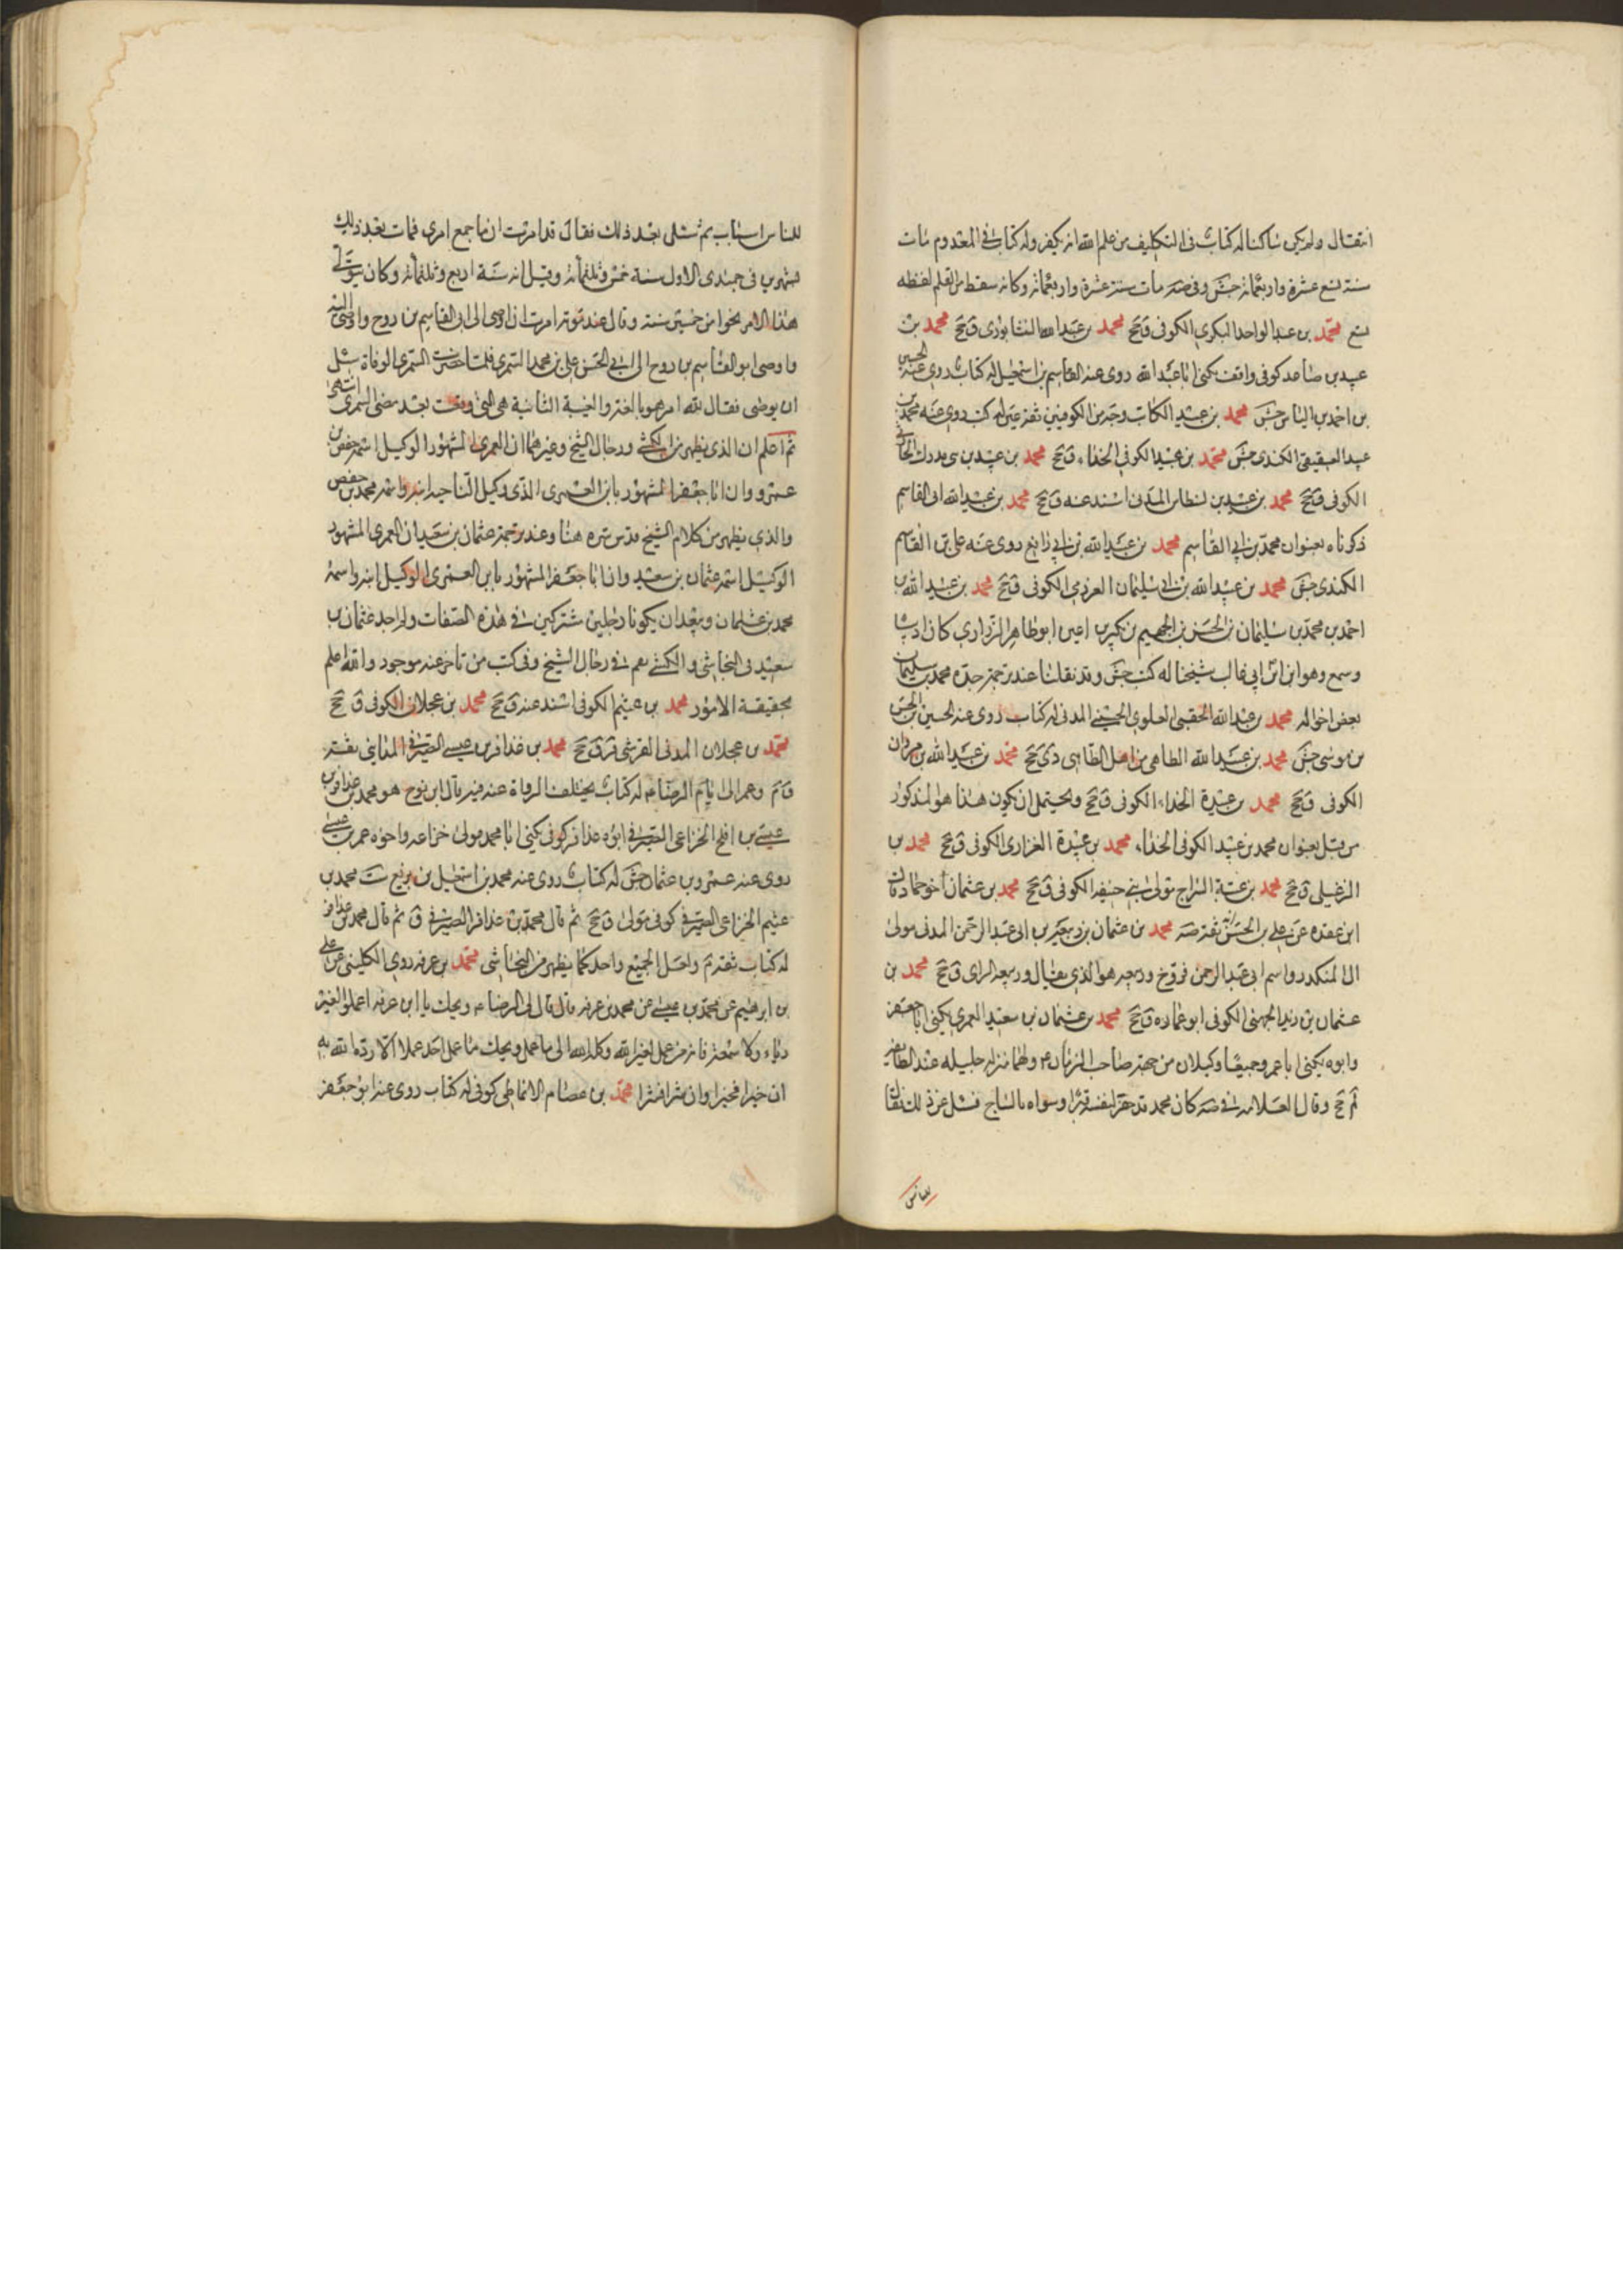 انتقال ولم يكن ساكنا له كتاب في التكليف من علم الله انه يكفر وله كتاب في المعدوم مات
سنة تسع عشرة واربعمائة جش وفي صه مات سنة عشرة واربعمائة وكانه سقط من القلم لفظه
تسع محمد بن عبد الواحد البكري الكوفي ق جخ محمد بن عبد الله النشابوري ق جخ محمد بن
عبيد بن صاعد كوفي واقف يكنى ابا عبد الله روى عنه القاسم بن اسمعيل له كتاب روى عنه الحسين
بن احمد بن الياس جش محمد بن عبيد الكاتب وجه من الكوفيين ثقة عين له كتب روى عنه محمد بن
عبد الكندي جش محمد بن عبيد الكوفي الحذاء ق جخ محمد بن عبيد بن مدرك الحارثي
الكوفي ق جخ محمد بن عبيد بن المدني اسند عنه ق جخ محمد بن عبيد الله ابي القاسم
ذكرناه بعنوان محمد بن ابي القاسم محمد بن عبيد الله بن ابي رافع روى عنه علي بن القاسم
الكندي جش محمد بن عبيد الله بن ابي سليمان العرزمي الكوفي ق جخ محمد بن عبيد الله بن
احمد بن محمد بن سليمان بن الحسن بن الجهم بن بكير بن اعين ابو طاهر الزراري كان اديبا
وسمع وهو ابن ابن ابي غالب شيخنا له كتب جش وقد نقلنا عند ترجمة جده محمد بن سليمان
بعض احواله محمد بن عبد الله العلوي الحسيني المدني له كتاب روى عنه الحسين بن الحسن
بن موسى جش محمد بن عبيد الله الطاهي من اهل الطاهي دي جخ محمد بن عبيد الله بن مروان
الكوفي ق جخ محمد بن عبيدة الحذاء الكوفي ق جخ ويحتمل ان يكون هذا هو المذكور
من قبل بعنوان محمد بن عبيد الكوفي الحذاء محمد بن عبيدة الفزاري الكوفي ق جخ محمد بن
ق جخ محمد بن عتبة السراج مولى بني حنيفة الكوفي ق جخ محمد بن عثمان اخو حماد قال
ابن عقده عن علي بن الحسن انه ثقة صه محمد بن عثمان بن ربيعة بن ابي عبد الرحمن المدني مولى
ال المنكدر واسم ابي عبد الرحمن فروخ وربيعه هو الذي يقال ربيعه الراى ق جخ محمد بن
عثمان بن زيد الجهني الكوفي ابو عماره ق جخ محمد بن عثمان بن سعيد العمري يكنى ابا جعفر
وابوه يكنى ابا عمرو جميعا وكيلان من جهة صاحب الزمان ع ولهما منزله جليله عند الطائفة
لم جخ وقال العلامه في صه كان محمد قد حفر لنفسه قبرا وسواه بالساج فسئل عن ذلك فقال
للناس
للناس اسباب ثم سئل بعد ذلك فقال قد امرت ان اجمع امري فمات بعد ذلك
بشهرين في جمادى الاول سنة خمس وثلثمائة وقيل انه سنة اربع وثلثمائة وكان يتولى
هذا الامر نحوا من خمسين سنة وقال عند موته امرت ان اوصي الى ابي القاسم بن روح واوصى اليه
واوصى ابو القاسم بن روح الى ابي الحسن علي بن محمد السمري فلما حضرت السمري الوفاة سئل
ان يوصى فقال لله امر هو بالغه والغيبة الثانية هي التي وقعت بعد مضي السمري انتهى
ثم اعلم ان الذي يظهر من الكشي ورجال الشيخ وغيرهما ان العمري المشهور الوكيل اسمه حفص بن
عمرو وان ابا جعفر المشهور بابن العمري الذي وكيل الناحية ابنه واسمه محمد بن حفص
والذي يظهر من كلام الشيخ قدس سره هنا وعند ترجمة عثمان بن سعيد ان العمري المشهور
الوكيل اسمه عثمان بن سعيد وان ابا جعفر المشهور بابن العمري الوكيل ابنه واسمه
محمد بن عثمان ويبعد ان يكونا رجلين مشتركين في هذه الصفات ولم اجد عثمان بن
سعيد في النجاشي والكشي نعم في رجال الشيخ وفي كتب من تاخر عنه موجود والله اعلم
بحقيقة الامور محمد بن عثيم الكوفي اسند عنه ق جخ محمد بن عجلان الكوفي ق جخ
محمد بن عجلان المدني القرشي ق جخ محمد بن عذافر بن عيسى الصيرفي المدايني ثقة
ق م وعمر الى ايام الرضا ع له كتاب يختلف الرواة عنه فيه قال ابن نوح هو محمد بن عذافر بن
عيسى بن افلح الخزاعي الصيرفي ابوه عذافر كوفي يكنى ابا محمد مولى خزاعه واخوه عمر بن عيسى
روى عنه عمرو بن عثمان جش له كتاب روى عنه محمد بن اسمعيل بن بزيع ست محمد بن
عثيم الخزاعي الصيرفي كوفي مولى ق جخ ثم قال محمد بن عذافر الصيرفي ق ثم قال محمد بن عذافر
له كتاب ثقة م ولعل الجميع واحد كما يظهر من النجاشي محمد بن عرفه روى الكليني عن علي
بن ابرهيم عن محمد بن عيسى عن محمد بن عرفه قال قال لي الرضا ع ويحك يا ابن عرفه اعملوا لغير
رياء ولا سمعة فانه من عمل لغير الله وكله الله الى ما عمل ويحك ما عمل احد عملا الا رداه الله به
ان خيرا فخيرا وان شرا فشرا محمد بن عصام الانماطي كوفي له كتاب روى عنه ابو جعفر